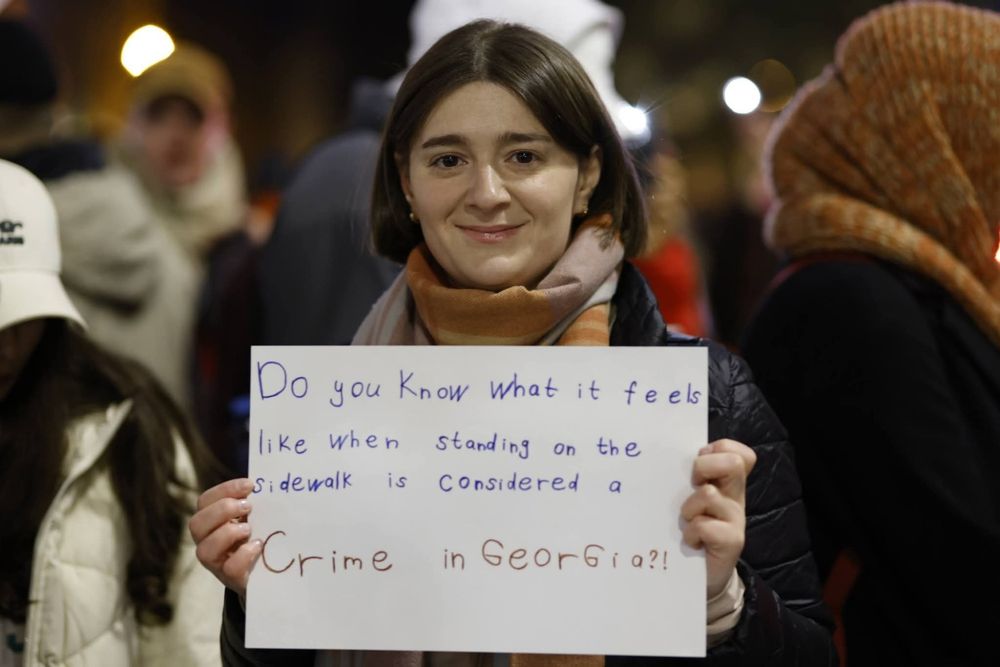 Do you Know what it feels
like when standing on the
sidewalk is considered a
Crime in GeorGia?!